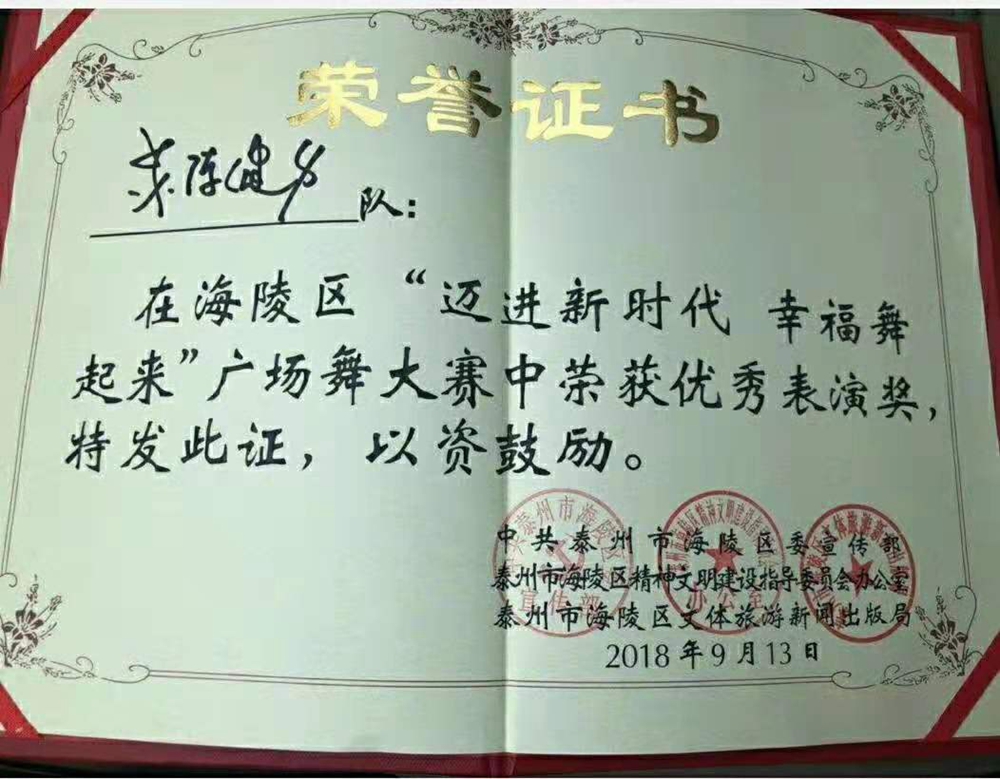 荣誉证书
陈健 队：
在海陵区“迈进新时代 幸福舞
起来”广场舞大赛中荣获优秀表演奖，
特发此证，以资鼓励。
中共泰州市海陵区委宣传部
泰州市海陵区精神文明建设指导委员会办公室
泰州市海陵区文体旅游新闻出版局
2018年9月13日